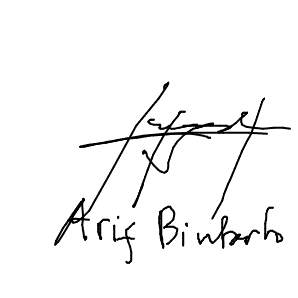 Arif Bintarto